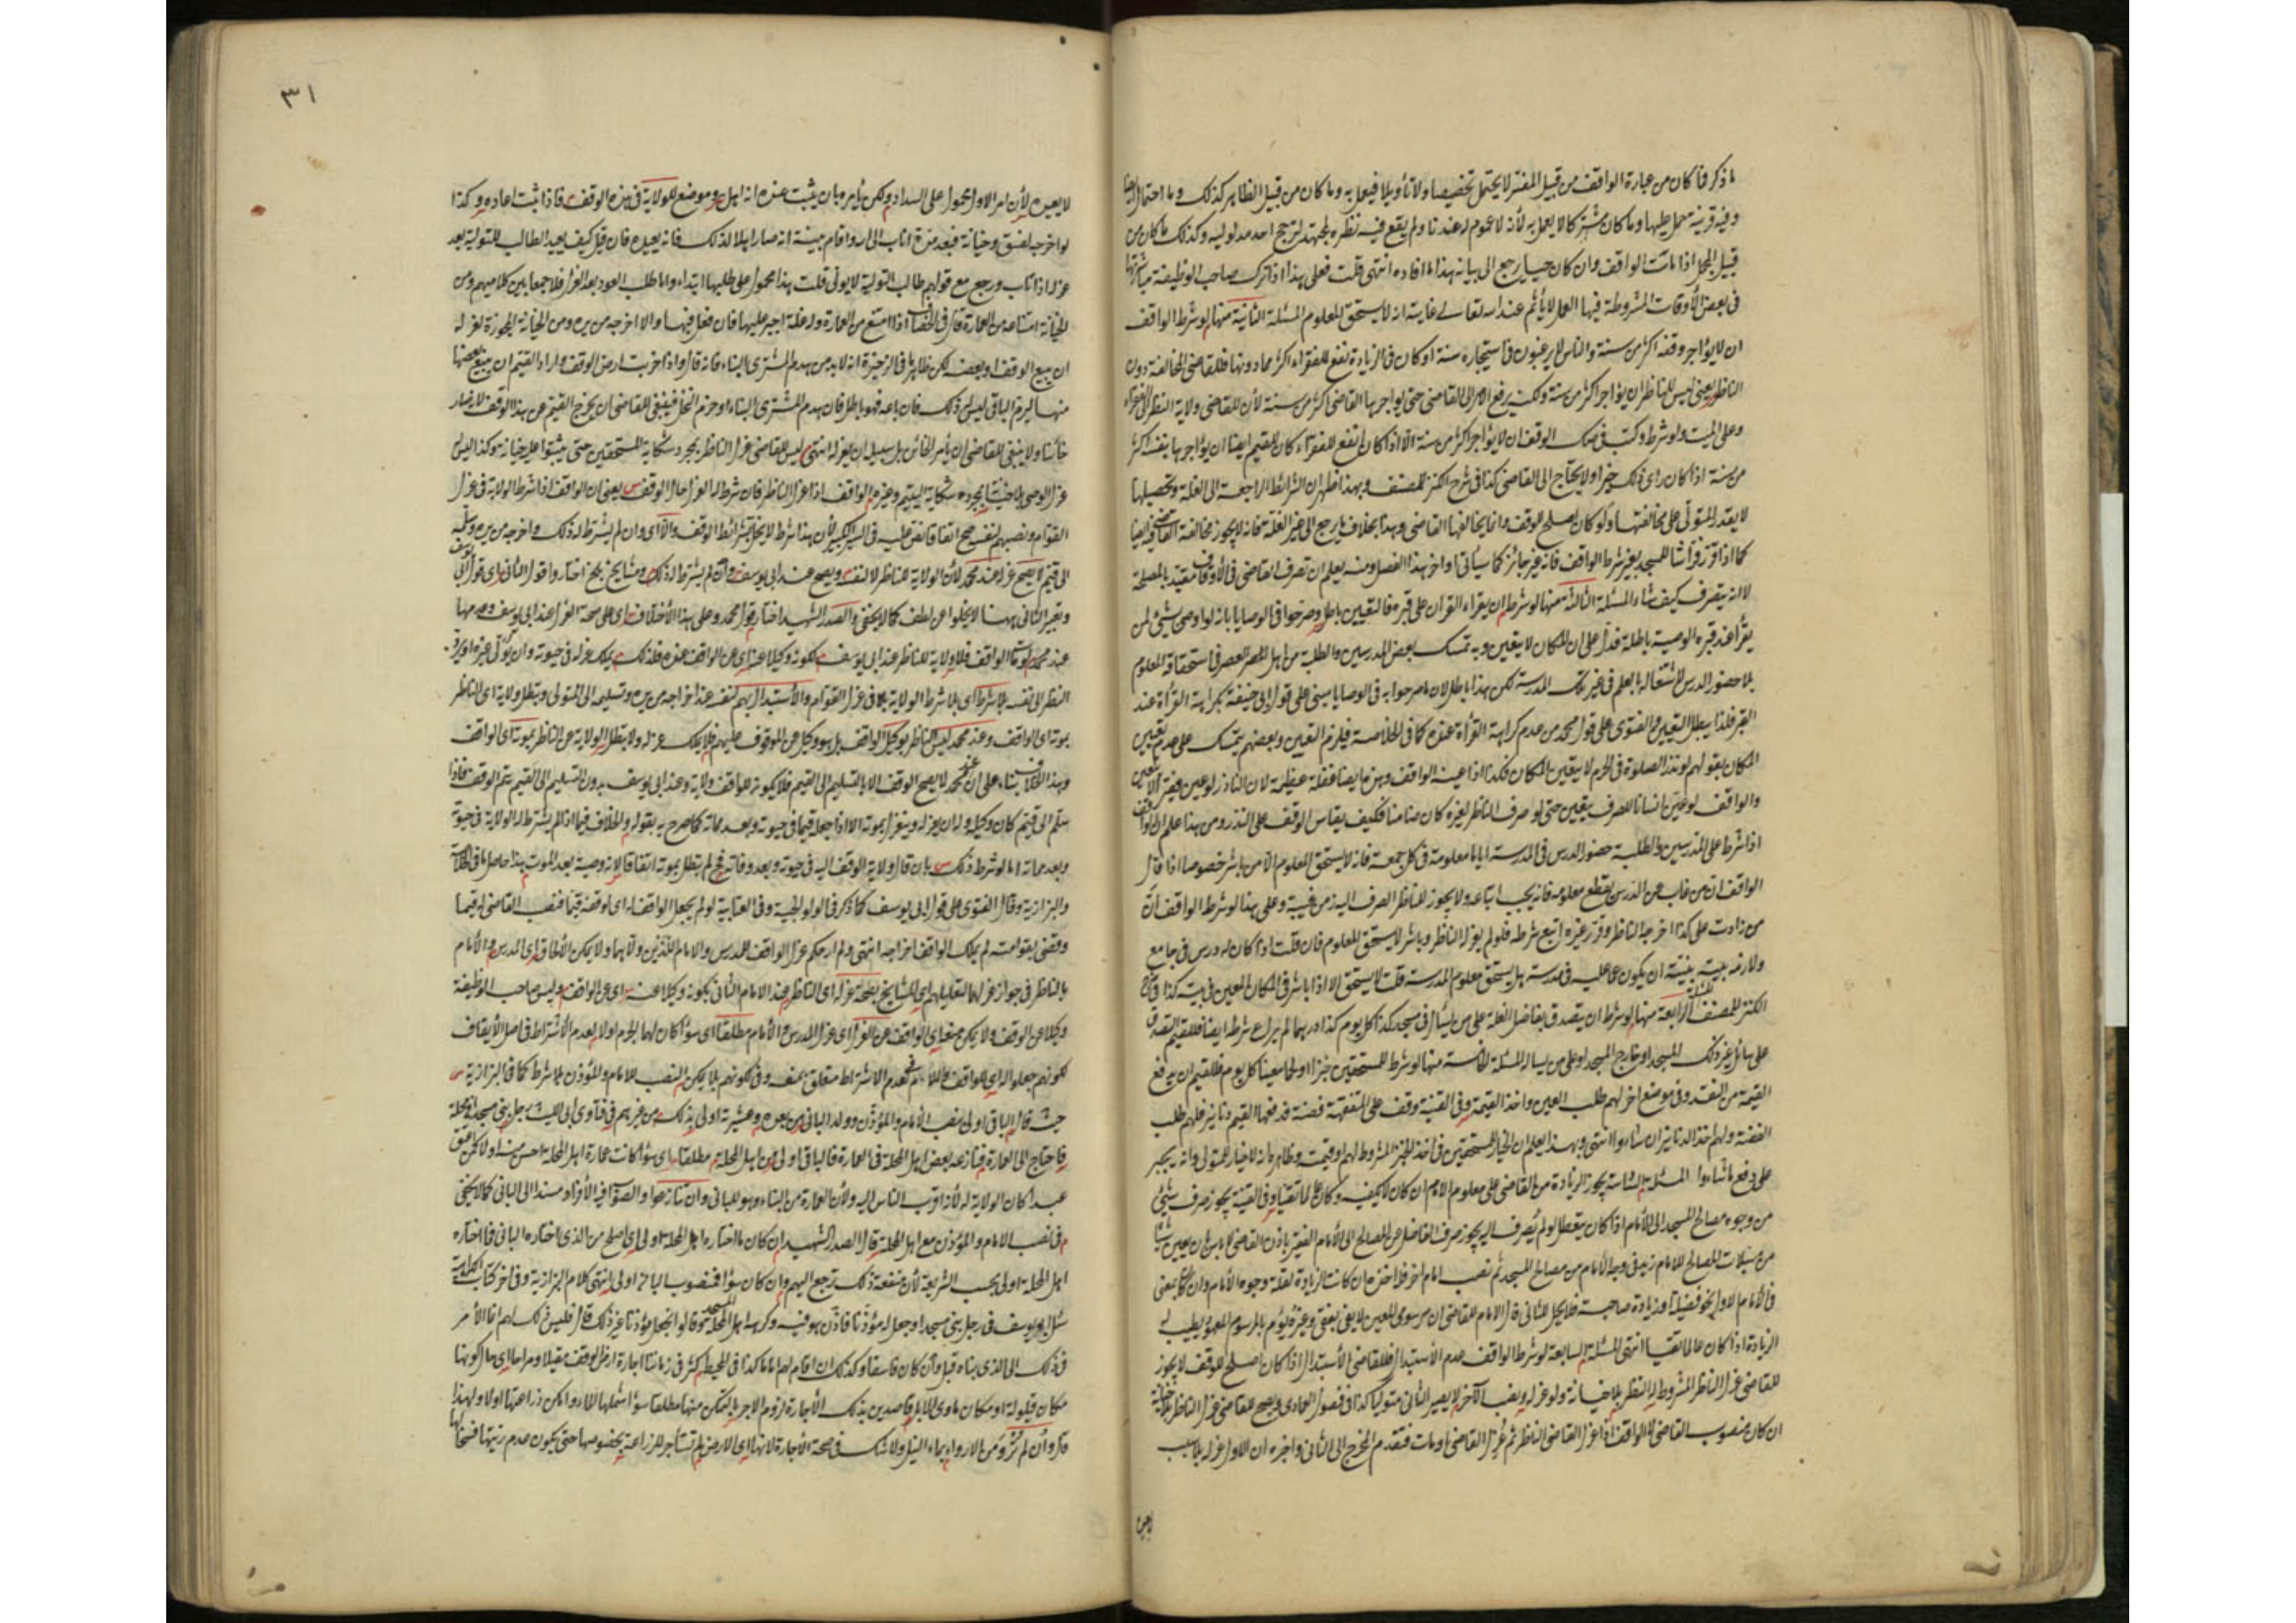 ما ذكر فما كان من عبارة الواقف من قبيل المفسر لا يحتمل تخصيصا ولا تأويلا فيعمل به وما كان من قبيل الظاهر كذلك وما احتمل
وفيه قرينة حمل عليها وما كان مشتركا لا يعمل به لأنه لا عموم له عندنا ولم يقع فيه نظر المجتهد لترجح احد مدلوليه وكذلك ما كان من
قبيل المجمل اذا مات الواقف وان كان حيا يرجع الى بيانه هذا ما افاده انتهى قلت فعلى هذا اذا ترك صاحب الوظيفة مباشرتها
فى بعض الأوقات المشروطة فيها العمل لا يأثم عند الله تعالى غايته انه لا يستحق المعلوم المسئلة الثانية منها لو شرط الواقف
ان لا يؤاجر وقفه اكثر من سنة والناس لا يرغبون فى استيجاره سنة او كان فى الزيادة نفع للفقراء فللقاضى المخالفة دون
الناظر يعنى ليس للناظر ان يؤاجر اكثر من سنة ولكن يرفع الامر الى القاضى حتى يواجرها القاضى اكثر من سنة لأن للقاضى ولاية النظر الى الفقراء
وعلى الميت ولو شرط وكتب فى صك الوقف ان لا يؤاجر اكثر من سنة الا اذا كان انفع للفقراء كان للقيم ايضا ان يؤاجرها بنفسه اكثر
من سنة اذا كان راى ذلك خيرا ولا يحتاج الى القاضى كذا فى شرح الكنز للمصنف وبهذا ظهر ان الشرائط الراجعة الى الغلة وتحصيلها
لا يقدر المتولى على مخالفتها ولو كان اصلح للوقف وانما يخالفها القاضى وهذا بخلاف ما يرجع الى غير الغلة فانه لا يجوز مخالفة القاضى فيه ايضا
كما اذا قرر فراشا للمسجد بغير شرط الواقف فانه غير جائز كما سيأتى اواخر هذا الفصل ومنه يعلم ان تصرف القاضى فى الأوقاف مقيد بالمصلحة
لا انه يتصرف كيف شاء المسئلة الثالثة منها لو شرط ان يقراء القران على قبره فالتعيين باطل وصرحوا فى الوصايا بانه لو اوصى بشئ لمن
يقرأ عند قبره الوصية باطلة فدل على ان المكان لا يتعين وبه تمسك بعض المدرسين والطلبة من اهل العصر فى استحقاقه المعلوم
بلا حضور الدرس لاشتغاله بالعلم فى غير تلك المدرسة لكن هذا باطل لان ما صرحوا به فى الوصايا مبنى على قول ابى حنيفة بكراهة القرأة عند
القبر فلذا يبطل التعيين والفتوى على قول محمد من عدم كراهة القرأة عنده كما فى الخلاصة فيلزم التعيين وبعضهم يتمسك على عدم تعيين
المكان بقولهم لو نذر الصلوة فى الحرم لا يتعين المكان فكذا اذا عينه الواقف وهذه ايضا غفلة عظيمة لان الناذر لو عين فقيرا لا يتعين
والواقف لو عين انسانا للصرف يتعين حتى لو صرف الناظر لغيره كان ضامنا فكيف يقاس الوقف على النذر ومن هذا علم ان الواقف
اذا شرط على المدرسين والطلبة حضور الدرس فى المدرسة اياما معلومة فى كل جمعة فانه لا يستحق المعلوم الا من باشر خصوصا اذا قال
الواقف ان من غاب عن الدرس يقطع معلومه فانه يجب اتباعه ولا يجوز للناظر الصرف اليه زمن غيبته وعلى هذا لو شرط الواقف ان
من زادت على كذا اخرجه الناظر وقرر غيره اتبع شرطه فلو لم يعزله الناظر وباشر لا يستحق المعلوم فان قلت اذا كان له درس فى جامع
ولازمه بنية ان يكون عما عليه فى مدرسة هل يستحق معلوم المدرسة قلت لا يستحق الا اذا باشر فى المكان المعين كذا فى شرح
الكنز للمصنف المسئلة الرابعة منها لو شرط ان يتصدق بفاضل الغلة على من يسأل فى مسجد كذا كل يوم كذا لم يراع شرطه ايضا فللقيم التصدق
على سائل غير ذلك المسجد او خارج المسجد او على من لا يسأل المسئلة الخامسة منها لو شرط للمستحقين خبزا او لحما معينا كل يوم فللقيم ان يدفع
القيمة من النقد وفى موضع اخر لهم طلب العين واخذ القيمة وفى القنية وقف على المتفقهة فضة فدفعها القيم دنانير فلهم طلب
الفضة ولهم اخذ الدنانير ان شاءوا انتهى وبهذا يعلم ان الخيار للمستحقين فى اخذ الخبز المشروط لهم او قيمته وظاهره انه لا خيار للمتولى وانه يجبر
على دفع ما شاءوا المسئلة السادسة يجوز الزيادة من القاضى على معلوم الامام ان كان لا يكفيه وكان عالما تقيا وفى القنية يجوز صرف شئ
من وجوه مصالح المسجد الى الأمام اذا كان يتعطل لو لم يُصرف اليه يجوز صرف الفاضل عن المصالح الى الأمام الفقير باذن القاضى لا بأس بان يعين شيئا
من مسبلات المصالح للامام زيد فى وجه الأمام من مصالح المسجد ثم نصب امام اخر فله اخذه ان كانت الزيادة لقلة وجوه الأمام وان كان لمعنى
فى الأمام الاول نحو فضيلة او زيادة حاجة فلا يحل للثانى قال الامام للقاضى ان مرسومى المعين لا يفى بنفقتى وغيره يؤم بالمرسوم المعهود يطيب له
الزيادة اذا كان عالما تقيا انتهى المسئلة السابعة لو شرط الواقف عدم الأستبدال فللقاضى الأستبدال اذا كان اصلح للوقف لا يجوز
للقاضى عزل الناظر المشروط له النظر بلا خيانة ولو عزله ونصب الآخر لا يصير الثانى متوليا كذا فى فصول العمادى ويصح للقاضى عزل الناظر بلا خيانة
ان كان منصوب القاضى لا الواقف اذا عزل القاضى الناظر ثم عُزل القاضى او مات فتقدم المخرج الى الثانى واخبره ان الاول عزله بلا سبب
لا يعيده
٣١
لا يعيده لأن امر الاول محمول على السداد ولكن يأمره بان يثبت عنده انه اهل وموضع للولاية فى هذه الوقف فاذا ثبت اعاده وكذا
لو اخرجه لفسق وخيانة فبعد مدة اناب الى الله واقام بينة انه صار اهلا لذلك فانه يعيده فان قيل كيف يعيد الطالب للتولية بعد
عزله اذا تاب ورجع مع قولهم طالب التولية لا يولى قلت هذا محمول على طلبها ابتداء واما طلب العود بعد العزل فلا جمعا بين كلاميهم ومن
الخيانة امتناعه من العمارة قال فى الخصاف اذا امتنع من العمارة وله غلة اجبر عليها فان فعل فبها والا اخرجه من يده ومن الخيانة المجوزة لعزله
ان يبيع الوقف او بعضه لكن ظاهر ما فى الذخيرة انه لا بد من هدم المشترى البناء فانه قال واذا خربت ارض الوقف واراد القيم ان يبيع بعضها
منها ليرم الباقى ليس له ذلك فان باعه فهو باطل فان هدم المشترى البناء او حرم النخل فينبغى للقاضى ان يخرج القيم عن هذا الوقف لانه صار
خائنا ولا ينبغى للقاضى ان يأمن الخائن بل سبيله ان يعزله انتهى ليس للقاضى عزل الناظر بمجرد شكاية المستحقين حتى يثبتوا عليه خيانة وكذا ليس
عزل الوصى بلا خيانة بمجرد شكاية اليتيم وغيره الواقف اذا عزل الناظر فان شرط له العزل حال الوقف يعنى ان الواقف اذا شرط الولاية فى عزل
القوام ونصبهم لنفسه صح اتفاقا نص عليه فى السير الكبير لأن هذا شرط لا يخل بشرائط الوقف والا اى وان لم يشترط له ذلك واخرجه من يده وسلمه
الى قيم لا يصح عزله عند محمد لأن الولاية للناظر لا لنفسه ويصح عند ابى يوسف وان لم يشترط له ذلك ومشايخ بلخ اختاروا قول الثانى اى قول ابى يوسف
وتعبير الثانى ههنا لا يخلوا عن لطف كما لا يخفى والصدر الشهيد اختار قول محمد وعلى هذا الأختلاف اى على صحة العزل عند ابى يوسف وعدمها
عند محمد لو مات الواقف فلا ولاية للناظر عند ابى يوسف لكونه وكيلا عنه اى عن الواقف عنده فلذلك يملك عزله فى حيوته وان يولى غيره او يرد
النظر الى نفسه بلا شرط اى بلا شرط الولاية كما فى عزل القوام والأستبدال بهم لنفسه عند اخراجه من يده وتسليمه الى المتولى وتبطل ولايته اى الناظر
بموته اى الواقف وعند محمد ليس الناظر بوكيل الواقف بل هو وكيل عن الموقوف عليهم فلا يملك عزله ولا تبطل الولاية عن الناظر بموته اى الواقف
وهذا الخلاف بناء على ان عند محمد لا يصح الوقف الا بالتسليم الى القيم فلا يكون للواقف ولاية وعند ابى يوسف بدون التسليم الى القيم يتم الوقف فاذا
سلم الى قيم كان وكيله وله ان يعزله وينعزل بموته الا اذا جعله قيما فى حيوته وبعد مماته كما صرح به بقوله والخلاف فيما اذا لم يشترط له الولاية فى حيوته
وبعد مماته اما لو شرط ذلك بان قال ولاية الوقف اليه فى حيوته وبعد وفاته فلم تبطل بموته اتفاقا لانه وصيه بعد الموت هذا حاصل ما فى الخلاصة
والبزازية وقال الفتوى على قول ابى يوسف كما ذكر فى الولوالجية وفى العتابية لو لم يجعل الواقف له اى لوقفه قيما فنصب القاضى له قيما
وقضى بقوامته لم يملك الواقف اخراجه انتهى ولم ار حكم عزل الواقف للمدرس والامام اللذين ولاهما ولا يمكن الألحاق اى المدرس والأمام
بالناظر فى جواز عزلهما لتعليلهم اى المشايخ لصحة عزله اى الناظر عند الامام الثانى بكونه وكيلا عنه اى عن الواقف وليس صاحب الوظيفة
وكيلا عن الوقف ولا يمكن منعه اى الواقف عن العزل اى عزل المدرس والأمام مطلقا اى سواء كان لهما اولا لعدم الأشتراط فى اصل الأيقاف
لكونهم جعلوا له اى للواقف عدم الاشتراط متعلق بمنعه وفى كونهم لا يمكن النصب للامام والمؤذن بلا شرط كما فى البزازية
حيث قال البانى اولى بنصب الأمام والمؤذن وولد البانى من بعده وعشيرته اولى بذلك من غيرهم فى فتاوى ابى الليث رجل بنى مسجدا فى محلة
فاحتاج الى العمارة فنازعه بعض اهل المحلة فى العمارة فالبانى اولى من اهل المحلة مطلقا اى سواء كانت عمارة اهل المحلة احسن منه اولا لكن من
عبد كان الولاية له لأنه اقرب الناس اليه ولأن العمارة من البناء وهو للبانى وان تنازعوا والصواب فيه الأفراد مسندا الى البانى كما لا يخفى
فى نصب الامام والمؤذن مع اهل المحلة قال الصدر الشهيد ان كان ما اختاره اهل المحلة اولى اى اصلح من الذى اختاره البانى فما اختاره
اهل المحلة اولى بحسب الشريعة لأن منفعة ذلك ترجع اليهم وان كان سواء فمنصوب البانى اولى انتهى كلام البزازية وفى اخر كتاب
سئل ابو يوسف فى رجل بنى مسجدا وجعل له مؤذنا فاذن هو فيه وكره اهل المحلة وقالوا نجعل مؤذنا غير ذلك قال فليس ذلك لهم انما الأمر
فى ذلك الى الذى بناه قبل وان كان فاسقا وكذلك ان اقام لها اماما كذا فى المحيط كثر فى زماننا اجارة ارض الوقف مقيلا ومراحا اى حال كونها
مكان قيلولة او مكان مأوى للابل قاصدين بذلك الأجارة لزوم الاجر بالتمكن منها مطلقا سواء شملها الماء وامكن زراعتها اولا ولهذا
قالوا وان لم تُروَ من الارواء بماء النيل ولا شك فى صحة الأجارة لانها اى الارض لم تستأجر للزراعة بخصوصها حتى يكون عدم ريّها فسخا لها